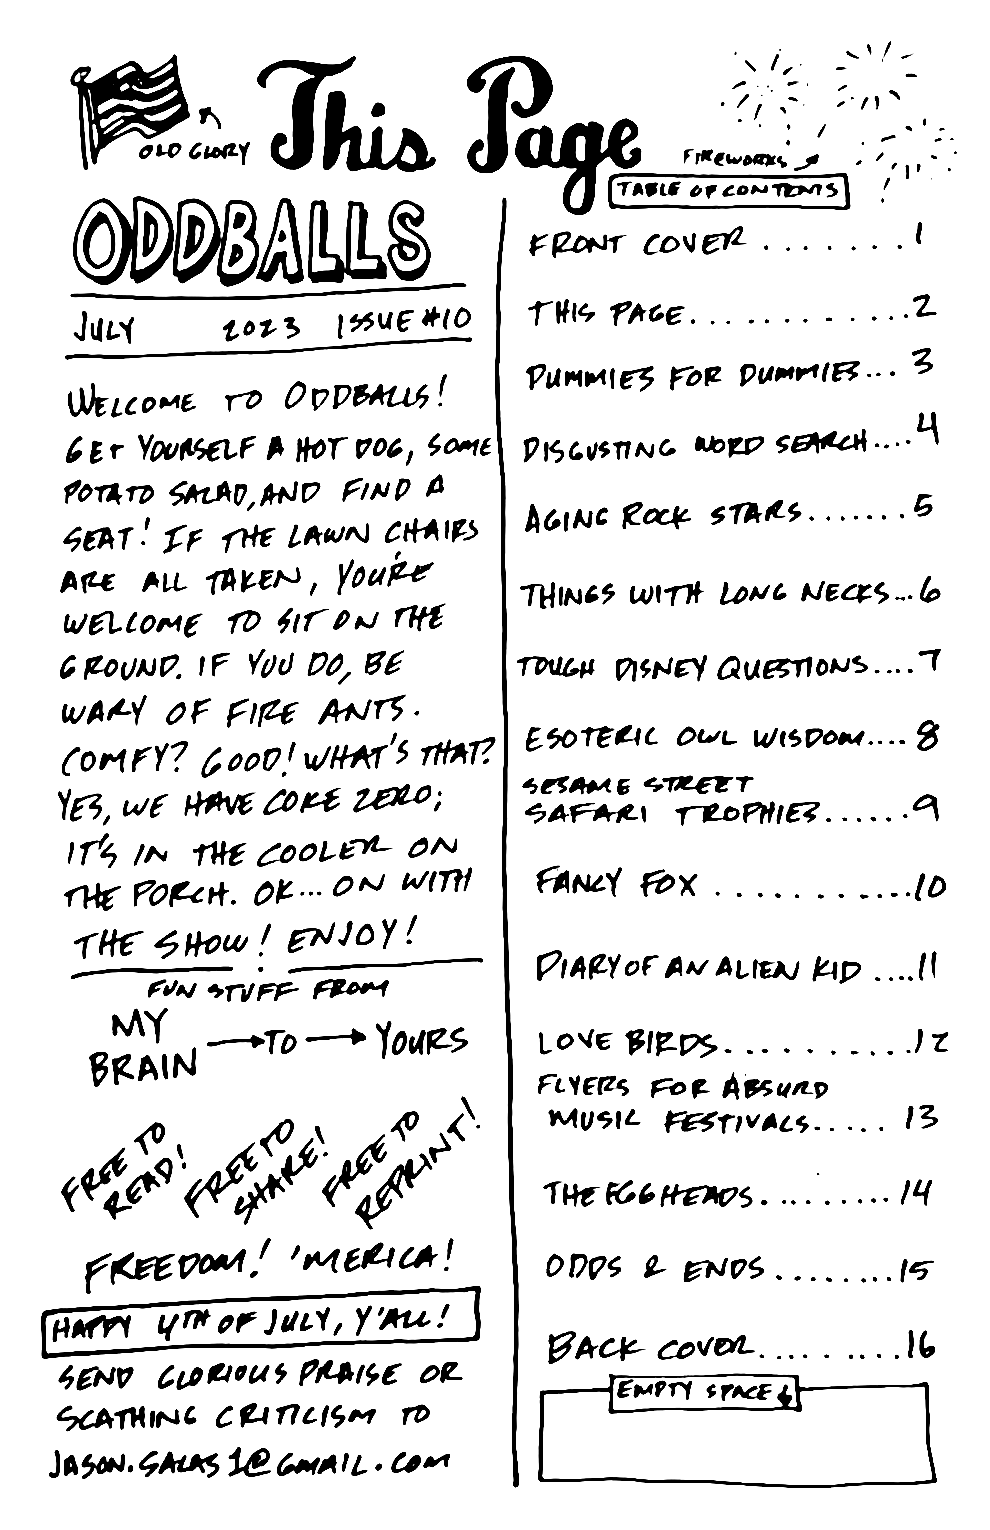 This Page
OLD GLORY
FIREWORKS
ODDBALLS
JULY 2023 ISSUE #10
WELCOME TO ODDBALLS!
GET YOURSELF A HOT DOG, SOME
POTATO SALAD, AND FIND A
SEAT! IF THE LAWN CHAIRS
ARE ALL TAKEN, YOU'RE
WELCOME TO SIT ON THE
GROUND. IF YOU DO, BE
WARY OF FIRE ANTS.
COMFY? GOOD! WHAT'S THAT?
YES, WE HAVE COKE ZERO;
IT'S IN THE COOLER ON
THE PORCH. OK... ON WITH
THE SHOW! ENJOY!
FUN STUFF FROM
MY
BRAIN → TO → YOURS
FREE TO
READ!
FREE TO
SHARE!
FREE TO
REPRINT!
FREEDOM! 'MERICA!
HAPPY 4TH OF JULY, Y'ALL!
SEND GLORIOUS PRAISE OR
SCATHING CRITICISM TO
JASON.SALAS1@GMAIL.COM
TABLE OF CONTENTS
FRONT COVER ....... 1
THIS PAGE............2
DUMMIES FOR DUMMIES... 3
DISGUSTING WORD SEARCH....4
AGING ROCK STARS.......5
THINGS WITH LONG NECKS...6
TOUGH DISNEY QUESTIONS....7
ESOTERIC OWL WISDOM.... 8
SESAME STREET
SAFARI TROPHIES......9
FANCY FOX ...........10
DIARY OF AN ALIEN KID ....11
LOVE BIRDS..........12
FLYERS FOR ABSURD
MUSIC FESTIVALS..... 13
THE EGGHEADS......... 14
ODDS & ENDS........15
BACK COVER.........16
EMPTY SPACE ↓